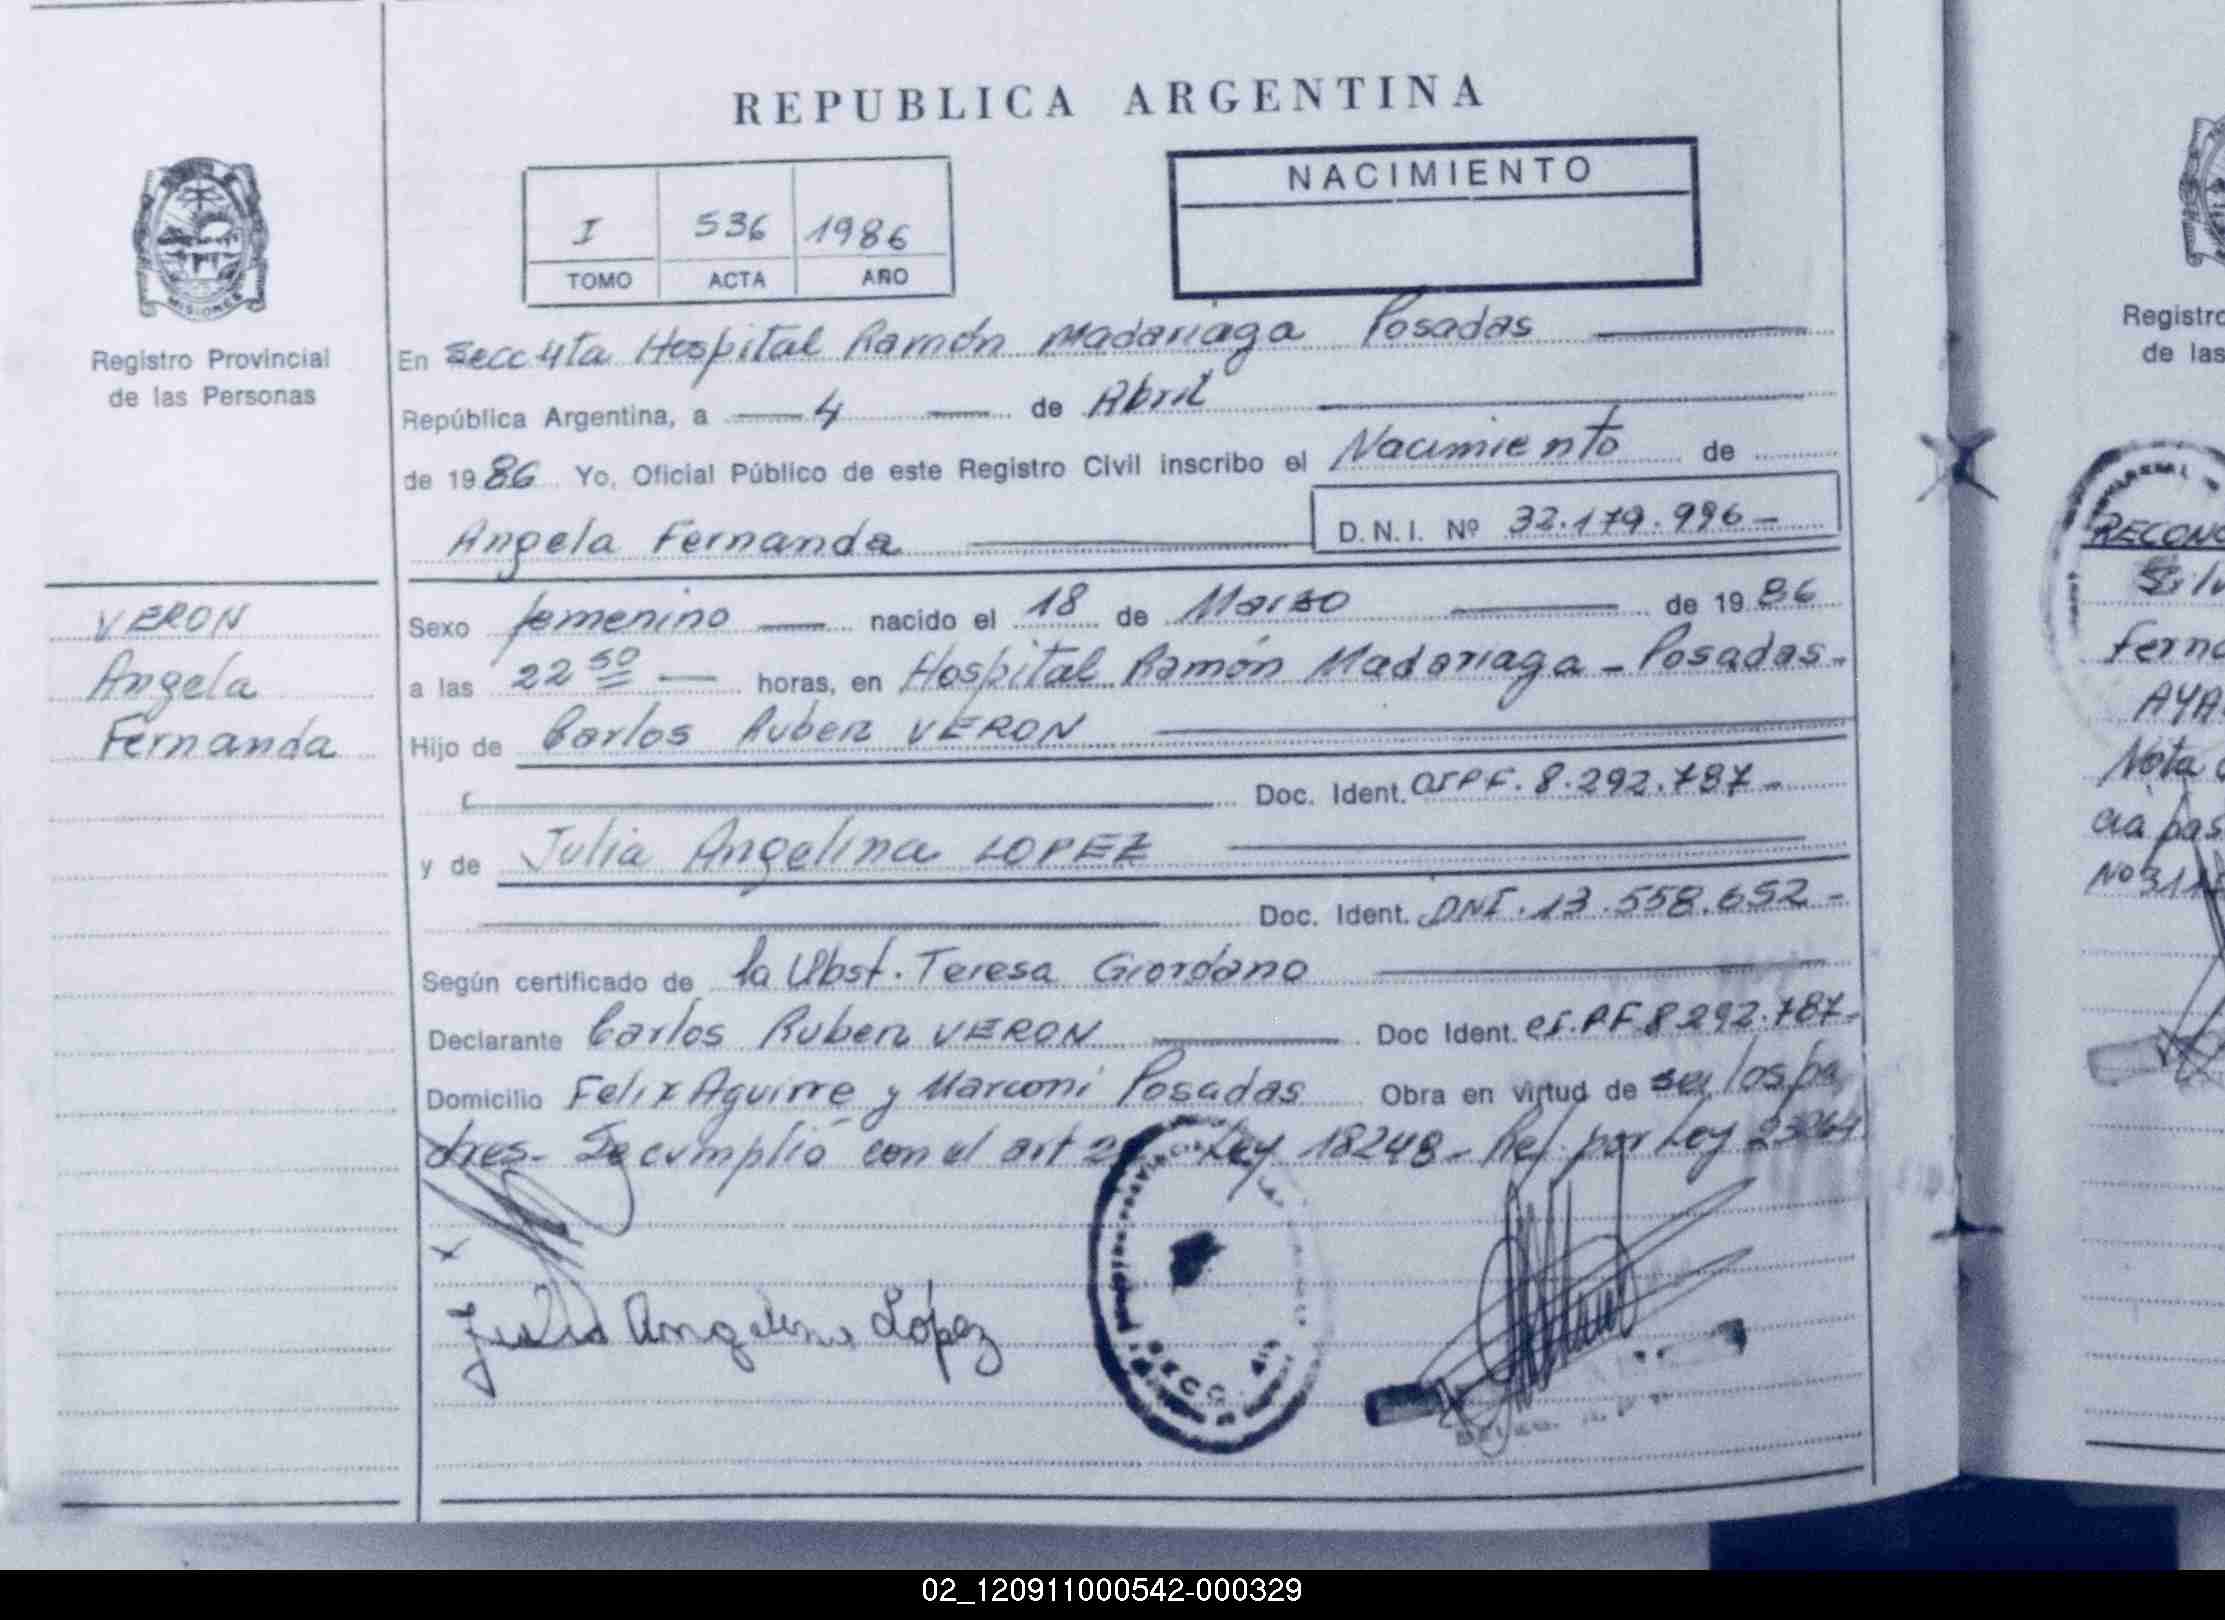 REPUBLICA ARGENTINA
NACIMIENTO
I 536 1986
TOMO ACTA AÑO
MISIONES
Registro Provincial
de las Personas
En Secc 4ta Hospital Ramón Madariaga Posadas
República Argentina, a 4 de Abril
de 1986 Yo, Oficial Público de este Registro Civil inscribo el Nacimiento de
Angela Fernanda D.N.I. Nº 32.179.996-
VERON
Angela
Fernanda
Sexo femenino nacido el 18 de Marzo de 1986
a las 22 50 horas, en Hospital Ramón Madariaga - Posadas-
Hijo de Carlos Ruben VERON
Doc. Ident. 8.292.787-
y de Julia Angelina LOPEZ
Doc. Ident. DNI. 13.558.652-
Según certificado de la Obst. Teresa Giordano
Declarante Carlos Ruben VERON Doc Ident. 8292.787-
Domicilio Felix Aguirre y Marconi Posadas Obra en virtud de ser los pa
dres- Se cumplió con el art 2 Ley 18248- Ref. por Ley 23264
Julia Angelina López
SECC. 4ta
Registro
de las
RECONO
Silv
Ferna
AYA
Nota
cia pas
02_120911000542-000329